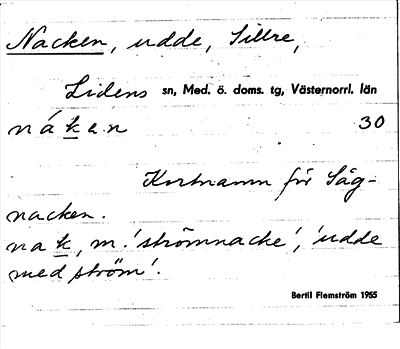 Nacken, udde, Sillre,
Lidens sn, Med. ö. doms. tg, Västernorrl. län
náken 30
Kortnamn för Såg-
nacken.
nak, m. 'strömnacke', 'udde
med ström'.
Bertil Flemström 1955